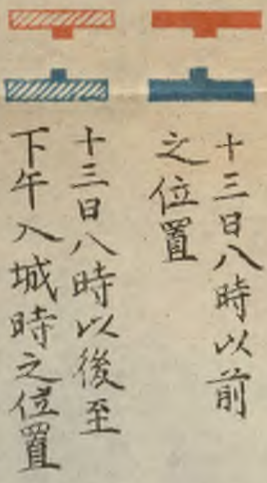 十三日八時以前
之位置
十三日八時以後至
下午入城時之位置